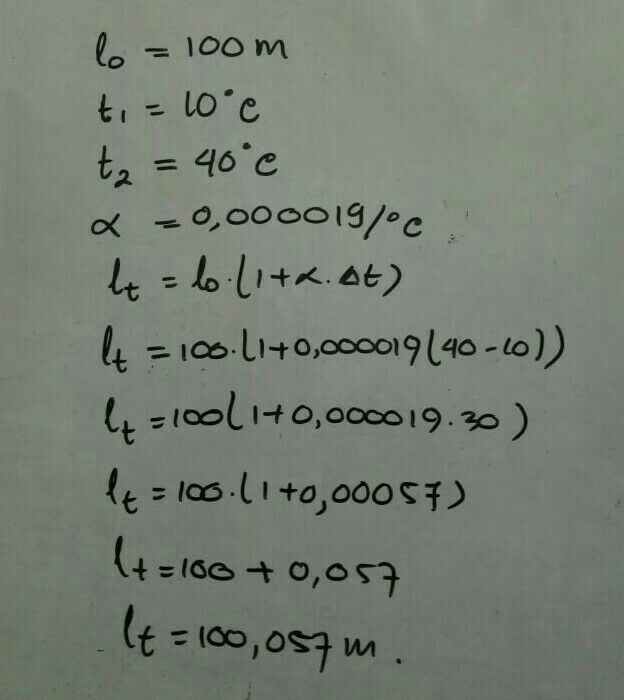 l₀ = 100 m
t₁ = 10°c
t₂ = 40°c
α = 0,000019/°c
lt = l₀.(1+α.Δt)
lt = 100.(1+0,000019(40-10))
lt = 100(1+0,000019.30)
lt = 100.(1+0,00057)
lt = 100 + 0,057
lt = 100,057 m.